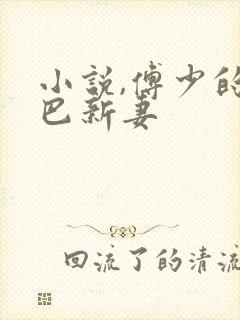 小说,傅少的
巴新妻
回流了的清流